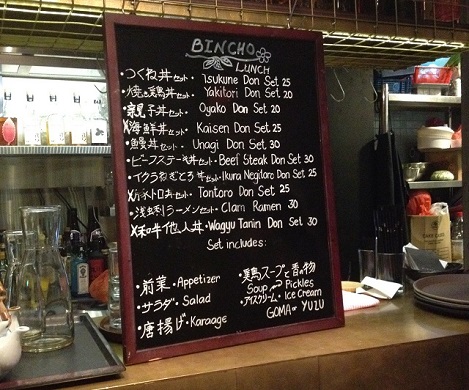 BINCHO
LUNCH
・つくね丼セット・ Tsukune Don Set 25
・焼き鳥丼セット・ Yakitori Don Set 20
・親子丼セット・ Oyako Don Set 20
X海鮮丼セット・ Kaisen Don Set 25
・鰻丼セット・ Unagi Don Set 30
・ビーフステーキ丼セット・ Beef Steak Don Set 30
・イクラねぎとろ丼セット・ Ikura Negitoro Don Set 25
Xトントロ丼セット・ Tontoro Don Set 25
ラーメンセット・ Clam Ramen 30
X和牛他人丼・ Wagyu Tanin Don Set 30
Set includes:
・前菜・Appetizer
・サラダ・Salad
・唐揚げ・Karaage
・鶏スープと香物
Soup Pickles
・アイスクリーム・Ice Cream
GOMA or YUZU